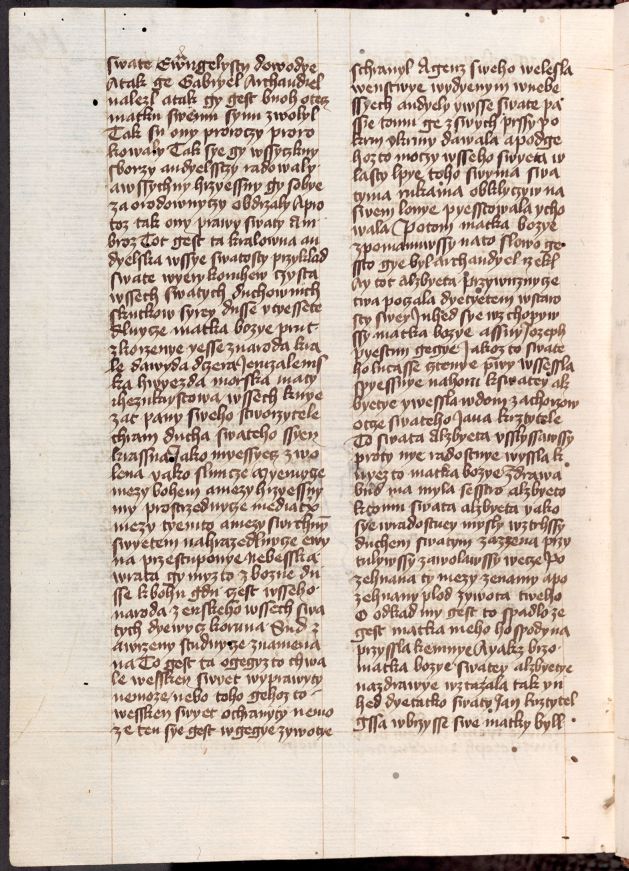 swate Ewngelysty dowodye
Atak ge Gabryel Archandiel
nalezl atak gy gest buoh otecz
matku swemu synu zwolyl
Tak su ony proroczy proro
kowaly Tak sye gy wssyczkny
sborzy andyelsszy radowaly
awssychny hrzyessny gy sobye
za orodownyczy obdrzaly Apro
toz tak ony prawy swaty Am
broz Tot gest ta kralowna an
dyelska wssye swatosty przyklad
swate wyery komhew czysta
wssech swatych duchownich
skutkow syrey dusse vtyessete
dlnycze matka bozye prut
zkorzene yesse znaroda kra
le dawyda dczera Jeruzalems
ka hwyezda morska maty
rhezukrystowa wssech knye
zat pany sweho stworzytele
chram ducha swateho ssien
krassna Jako myessyecz zwo
lena yako sluncze Ayemuge
mezy bohem amezy hrzyessny
my prostrzednycze mediatrx
mezy tyemto amezy swrchny
swyetem nahrazedlnycze ewy
na przestupenye nebesska
wrata gymyz to z bozue du
sse k bohu gdu czest wsseho
naroda zenskeho wssech swa
tych dyewycz koruna Sud z
awrzeny studnycze znamena
na To gest ta ogegyzto chwa
le wessken swyet wyprawyty
nemoze nebo toho gehoz to
wessken swyet ochranyty nemo
ze ten sye gest wgegye zywotye
schranyl Agenz sweho welesla
wenstwye wydyenym wnebe
ssyech andyely wsse swate pa
sse tomu ge zswych prssy po
krm vkrmy dawala apodge
hozto moczy wsseho swyeta w
lasty lpye toho swyma swa
tyma rukama obklyczyw na
swem lonye pyesstowala ycho
wala Potom matka bozye
zpomanuwssy nato slowo ge
ssto gye byl Archandyel rzekl
Ay tot alzbyeta przywuznycze
twa poczala dyetyetem wstaro
sty swey Jnhed sye wzchopyw
ssy matka bozye assny Jozeph
pyestun gegye Jakoz to swate
ho lucasse cztenye prwy wssessla
spyessnye nahoru kswatey alz
byetye ywessla wdomy zachorzow
otcze swateho Jana krztytele
To swata Alzbyeta vsslyssawssy
proty nye radostnye wyssla k
nyez to matka bozye Zdrawa
bud ma myla sesstro alzbyeto
kczomu swata alzbyeta yako
sye wradostney mysly wztrhssy
duchem swatym zazzena przy
tulywssy zawolawssy wecze Po
zehnana ty mezy zenamy apo
zehnany plod zywota tweho
O odkad my gest to spadlo ze
gest matka meho hospodyna
przyssla kemnye Ayakz brzo
matka bozye swatey alzbyetye
nazdrawye wztazala tak yn
hed dyetatko swaty Jan krztytel
gssa wbrzysse swe matky byll